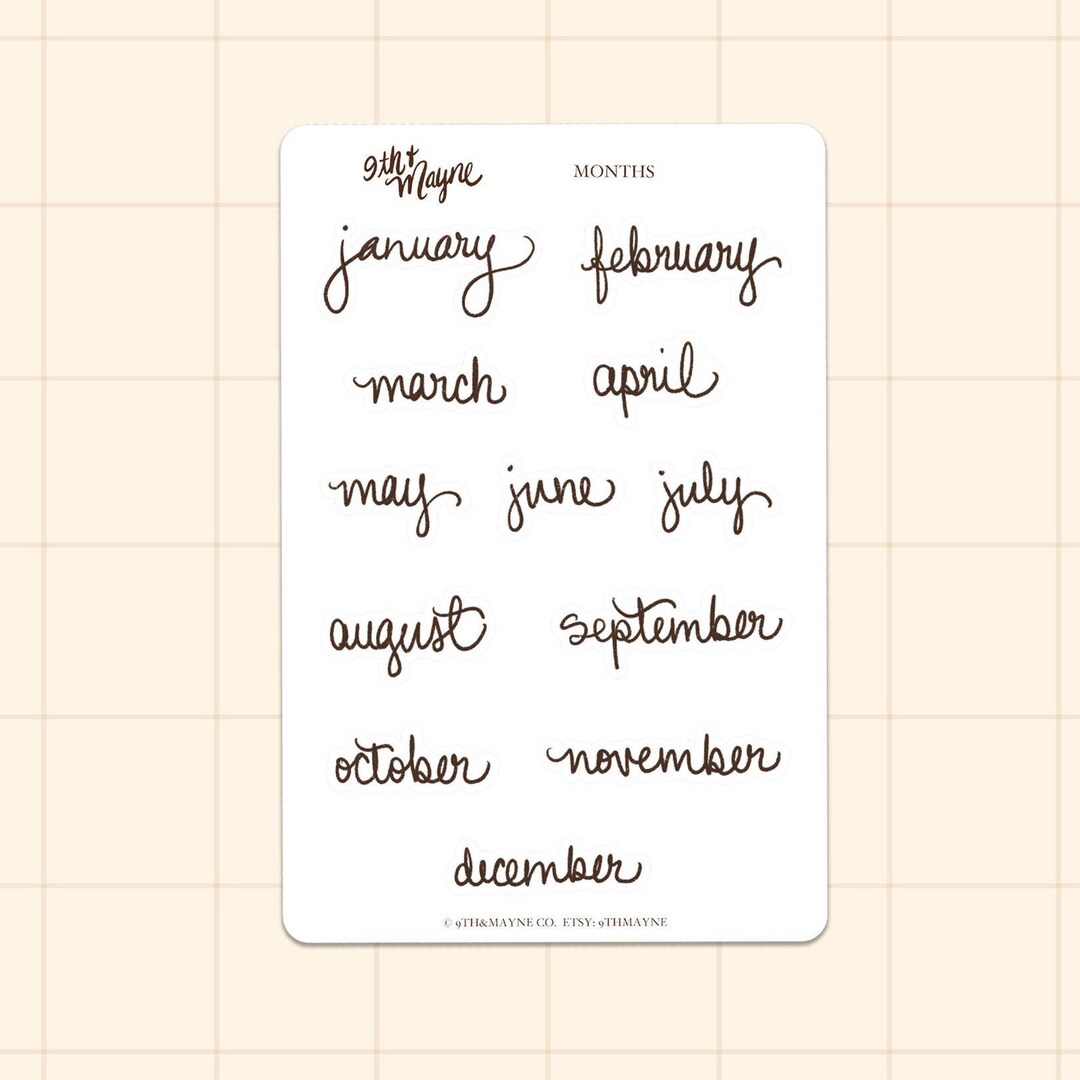 9th & Mayne MONTHS
january february
march april
may june july
august september
october november
december
© 9TH&MAYNE CO. ETSY: 9THMAYNE